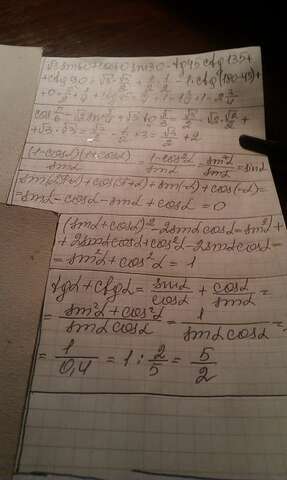 √3 sin60 + cos60 sin30 - tg45 ctg135 +
+ ctg90 = √3·√3/2 + 1/2·1/2 - 1·ctg(180-45) +
cos π/6 - √2 sin π/4 + √3 tg π/3 = √3/2 - √2·√2/2 +
+ √3·√3 = √3/2 - + 3 = √3/2 + 2
(1-cosα)(1+cosα)/sinα = 1-cos²α/sinα = sin²α/sinα = sinα
sin(π+α) + cos(π+α) + sin(-α) + cos(-α) =
= -sinα - cosα - sinα + cosα = 0
(sinα+cosα)² - 2sinα cosα = sin²α +
+ 2sinα cosα + cos²α - 2sinα cosα =
= sin²α + cos²α = 1
tgα + ctgα = sinα/cosα + cosα/sinα =
= sin²α + cos²α/sinα cosα = 1/sinα cosα =
= 1/0,4 = 1 : 2/5 = 5/2